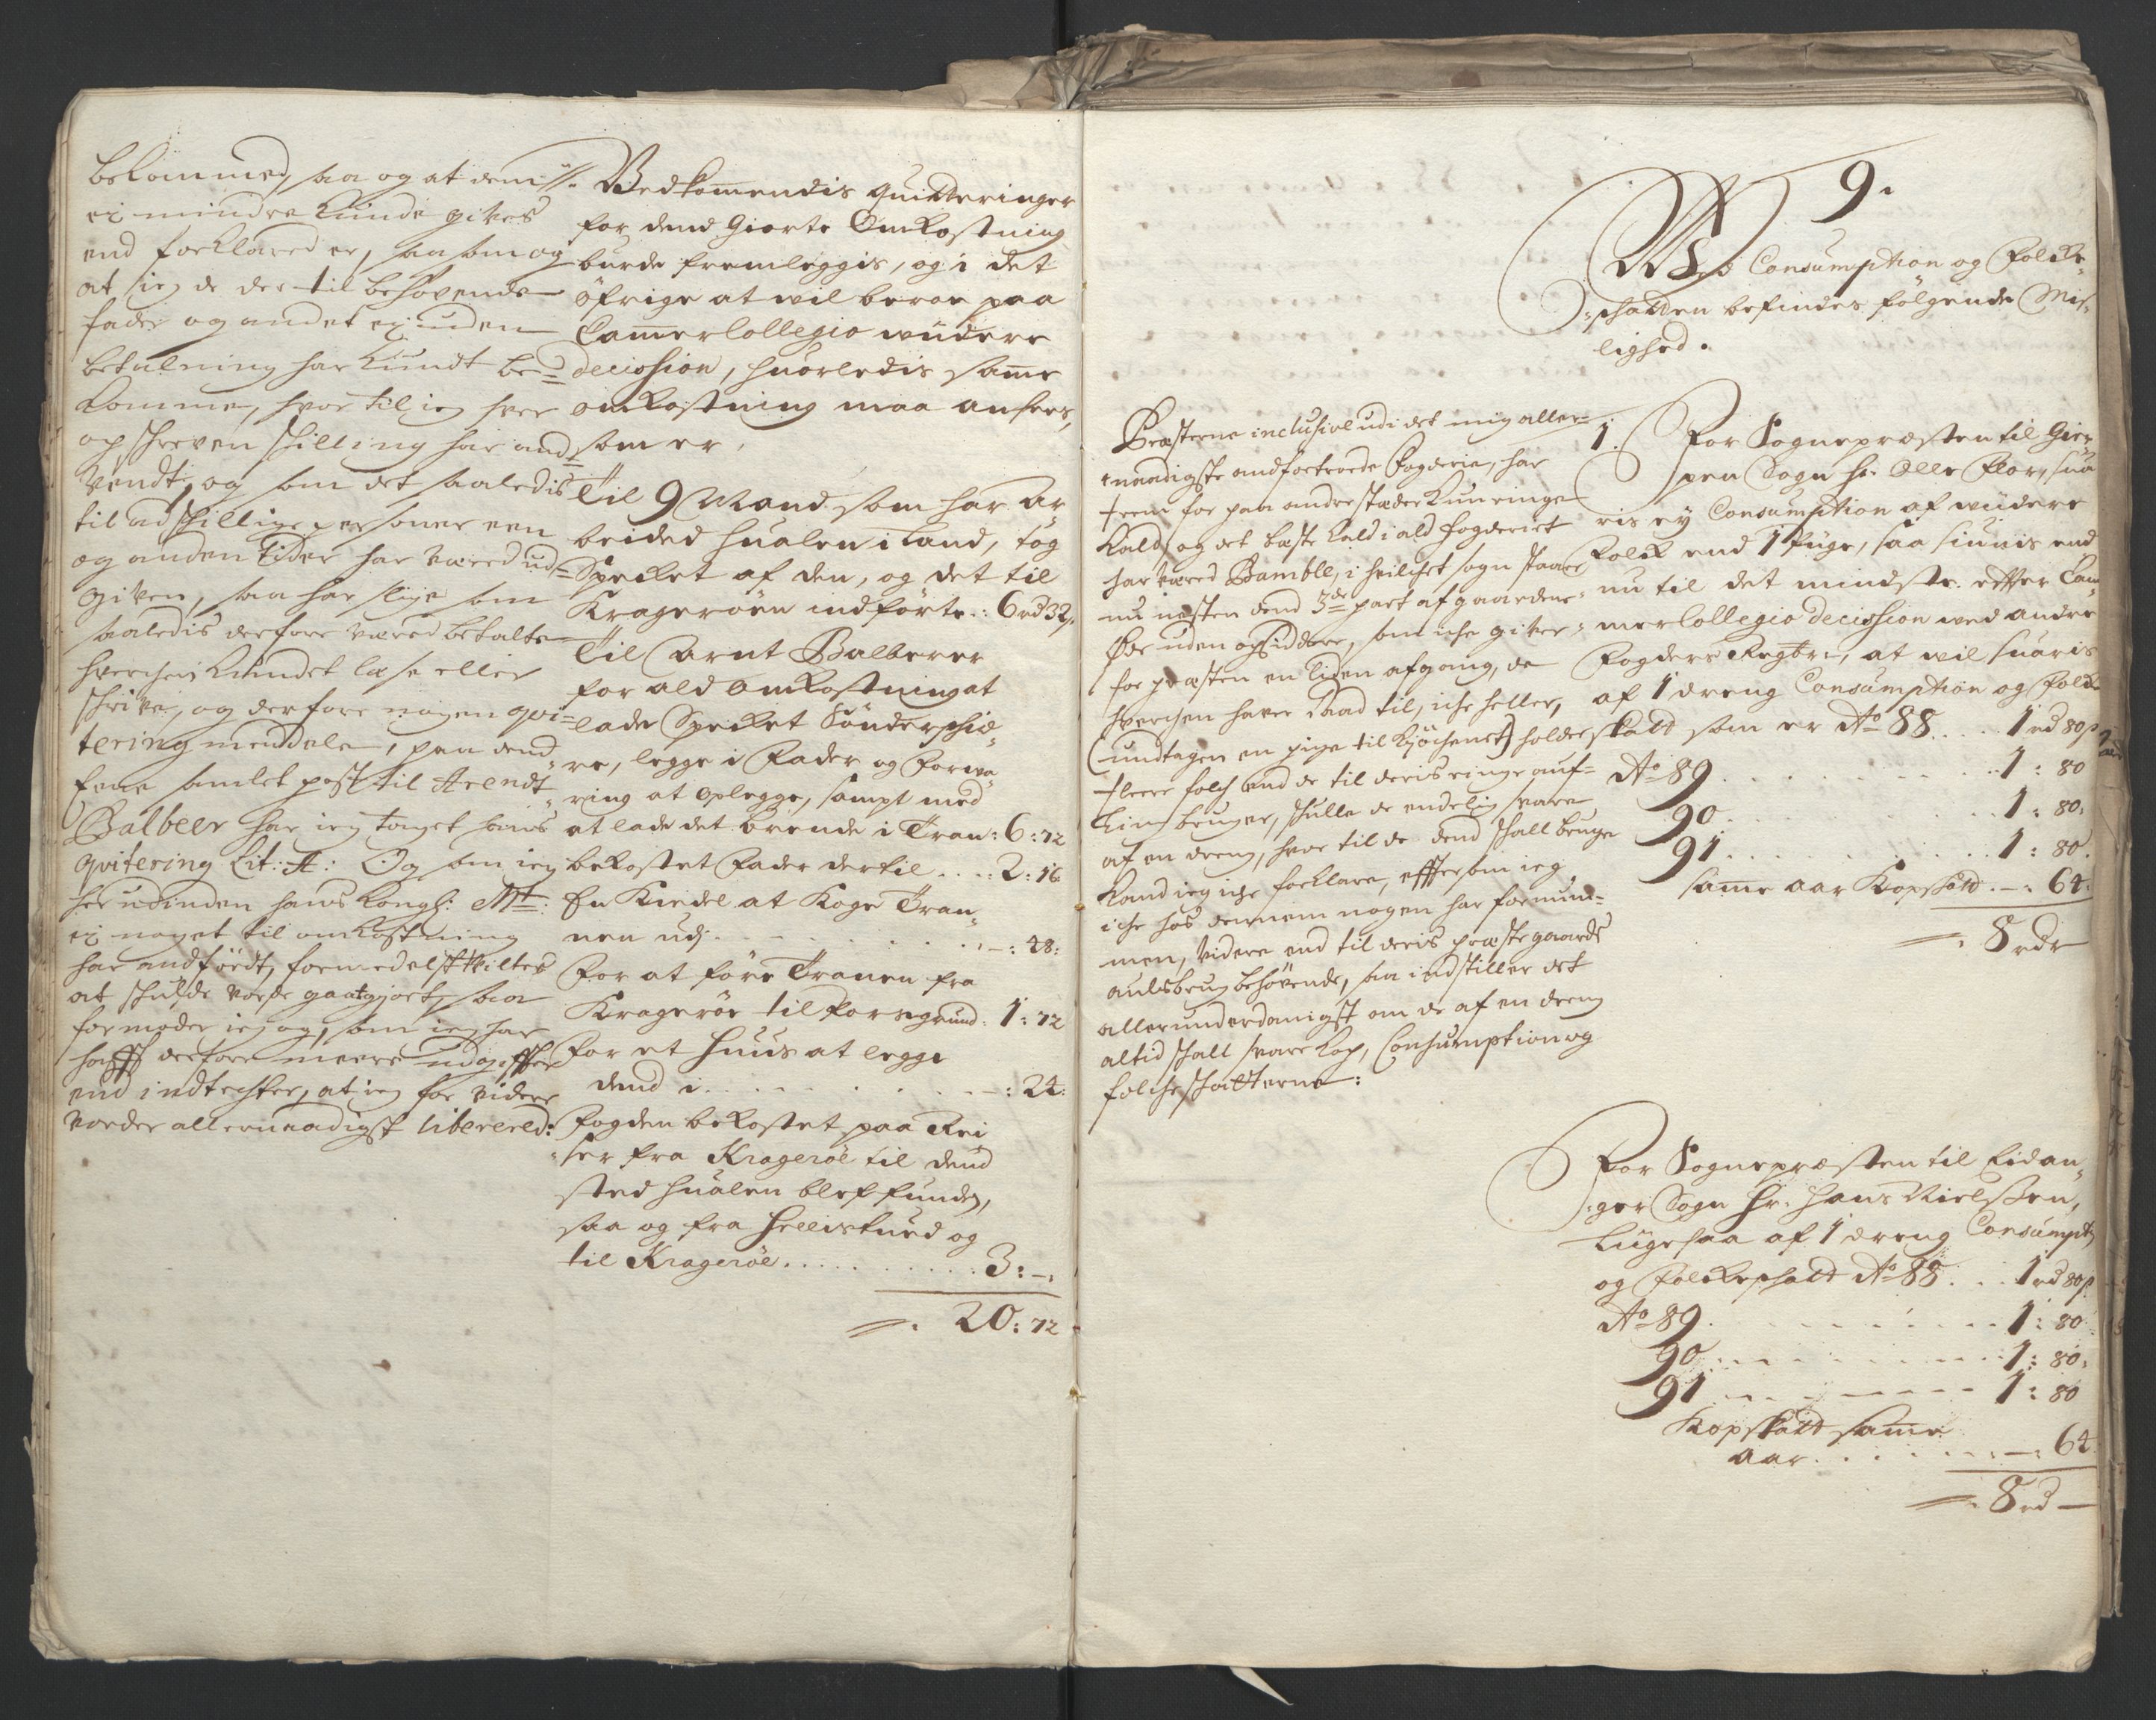 bekommed, saa og at dem
ei mindre kunde gives
end forklared er, saa som og
at jeg de der til behøvende
fade og andet ei uden
betalning har kundt be=
komme, hvor til jeg hver
opschreven schilling har and=
vendt, og som det saaledis
til adschillige personer een
og anden tider har værred ud=
given, saa har slige som
saaledis derfore værred betalte
hverchen kundet læse eller
schrive, og derfore ingen qvi=
tering meddele, paa dend
eene samlet post til Arendt
Balbeer har ieg taget hans
qvitering Lit: A: Og som ieg
her udinden hans Kongl: Mt:
ei noget til omkostning
har andførdt, formedelst
at schulde vorde gaatgjort, saa
formoder ieg og, som ieg har
hafft derfore meere udgiffter
end indtechter, at ieg for videre
vorder allernaadigst liberered:
//. Vedkommendis quitteringer
for dend giorte Omkostning
burde fremleggis, og i det
öfrige at wil beroe paa
Camer Collegio widere
decission, huorledis samme
omkostning maa ansees,
som er,
Til 9 Mand som har ar
beided hualen i Land, tog
Specket af den, og det til
Krageröen indförte .: 6 rd 32 s.
Til Arnt Balberer
for ald omkostning at
lade Specket Sönderschie,,
re, legge i Fader og forwa,,
ring at oplegge, sampt med
at lade det brende i Tran : 6 : 72
bekostet Fader dertil .... : 2 : 16
En Kiedel at koge Tran,,
nen udj . . . . . . . –: 48:
For at före Tranen fra
Krageröe til Porsgrund : 1 : 72
For et Huus at legge
dend i . . . . . . . –: 24:
Fogden bekostet paa Rei
,,ser fra Krageröe til dend
sted hualen blef funden,
saa og fra Hellistued og
til Krageröe . . . . . . . 3 : –.
20 : 72
9.
Ved Consumption og Folcke,,
,,schatten befindes fölgende Mis,,
lighed.
Præsterne inclusive udi det mig aller=
naadigste andfortroede Fogderie, har
frem for paa andre stæder kun ringe
kald, og det bæste kald i ald fogderiet
har væred Bamble, i hvilchet sogn staar
nu næsten dend 3de part af gaardene
Øde uden opsiddere, som iche giver
for præsten en liden afgang, de
hverchen haver Raad til, iche heller,
(undtagen en pige til Kjøchenet) holder
fleere folch end de til deris ringe auf=
ling bruger, schulle de endelig svare
af en dreng, hvor til de dend schall bruge
kand ieg iche forklare, effttersom ieg
iche hos dennem nogen har fornum=
men, videre end til deris præstegaards
aulsbrug behøvende, saa indstiller det
allerunderdanigst om de af en dreng
altid schall svare Kop, Consumption og
folcheschatterne:
1. For Sognepræsten til Gier
pen Sogn Hr. Olle Flor, sua
ris ey Consumption af widere
Folck end 1 Pige, saa siunis end
nu til det mindste effter Cam,,
mer Collegio decission wed andre
Fogders Regtr:, at wil suaris
af 1 dreng Consumption og Folcke
skatt som er Ao 88 . . . . 1 rd 80 s
Ao 89 . . . . . . . 1 : 80
90 . . . . . . . 1 : 80:
91 . . . . . . . 1 : 80.
samme aar Kopskatt . –: 64:
8 rdr
For Sognepræsten til Eidan,,
,,ger Sogn Hr. Hans Nielssen,
Liigesaa af 1 dreng Consumpt,,
og Folckeschatt Ao 88 . . . 1 rd 80 s
Ao 89 . . . . . . . 1 : 80
90 . . . . . . . 1 : 80:
91 . . . . . . . 1 : 80
Kopskatt samme
aar . . . . . . . –: 64
8 rd –